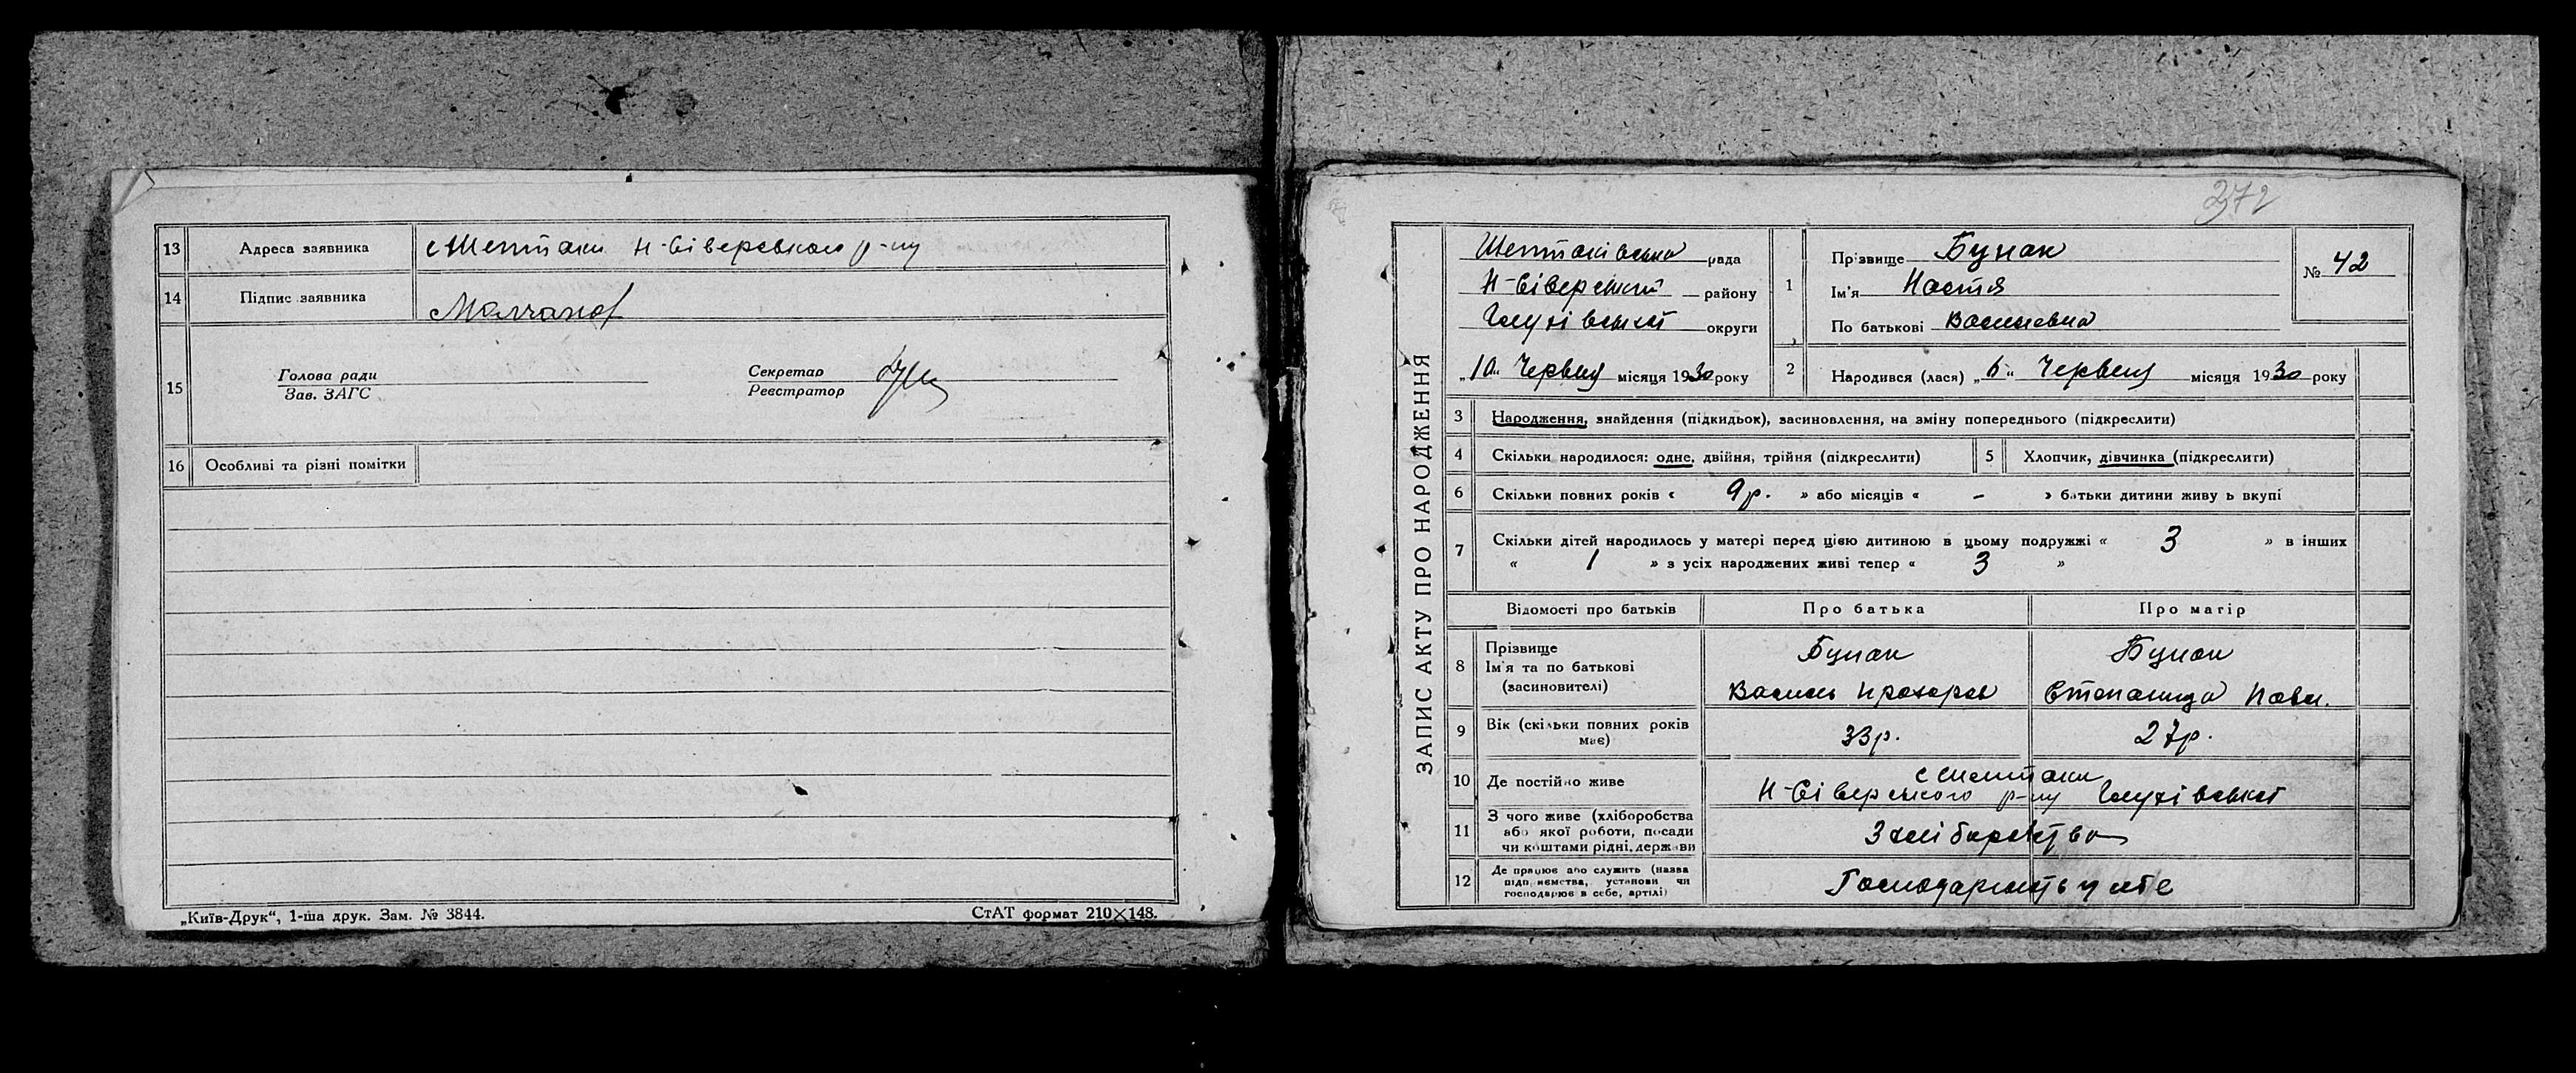 13 Адреса заявника с Шептаки Н-Сіверського р-ну
14 Підпис заявника Молчанов
15 Голова ради
Зав. ЗАГС
Секретар
Реєстратор
16 Особливі та різні помітки
„Київ-Друк“, 1-ша друк. Зам. № 3844.
СтАТ формат 210×148.
372
ЗАПИС АКТУ ПРО НАРОДЖЕННЯ
Шептаківська рада
Н-Сіверський району
Глухівської округи
„10“ Червня місяця 1930 року
1 Прізвище Бунак
Ім'я Настя
По батькові Василевна
№ 42
2 Народився (лася) „6“ Червня місяця 1930 року
3 Народження, знайдення (підкидьок), засиновлення, на зміну попереднього (підкреслити)
4 Скільки народилося: одне, двійня, трійня (підкреслити)
5 Хлопчик, дівчинка (підкреслити)
6 Скільки повних років « 9р. » або місяців « - » батьки дитини живуть вкупі
7 Скільки дітей народилось у матері перед цією дитиною в цьому подружжі « 3 » в інших
« 1 » з усіх народжених живі тепер « 3 »
Відомості про батьків Про батька Про матір
8 Прізвище
Ім'я та по батькові
(засиновителі)
Бунак
Василь Прохоров
Бунак
Степанида Павл.
9 Вік (скільки повних років має) 33р. 27р.
10 Де постійно живе с Шептаки
Н-Сіверського р-ну Глухівської
11 З чого живе (хліборобства
або якої роботи, посади
чи коштами рідні, держави
З хліборобства
12 Де працює або служить (назва
підприємства, установи чи
господарює в себе, артілі)